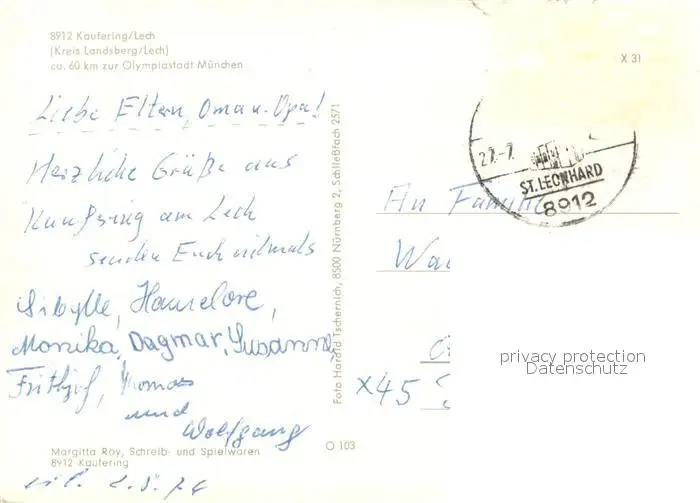 8912 Kaufering/Lech
(Kreis Landsberg/Lech)
ca. 60 km zur Olympiastadt München
X 31
Liebe Eltern, Oma u. Opa!
Herzliche Grüße aus
Kaufring am Lech
senden Euch vielmals
Sibylle, Hannelore,
Monika, Dagmar, Susanne,
Frithjof, Thomas
und
Wolfgang
Margitta Roy, Schreib- und Spielwaren
8912 Kaufering
Foto Harald Tschernich, 8500 Nürnberg 2, Schließfach 25/1
O 103
27.-7.
ST. LEONHARD
8912
An Familie
Wa
X45
privacy protection
Datenschutz